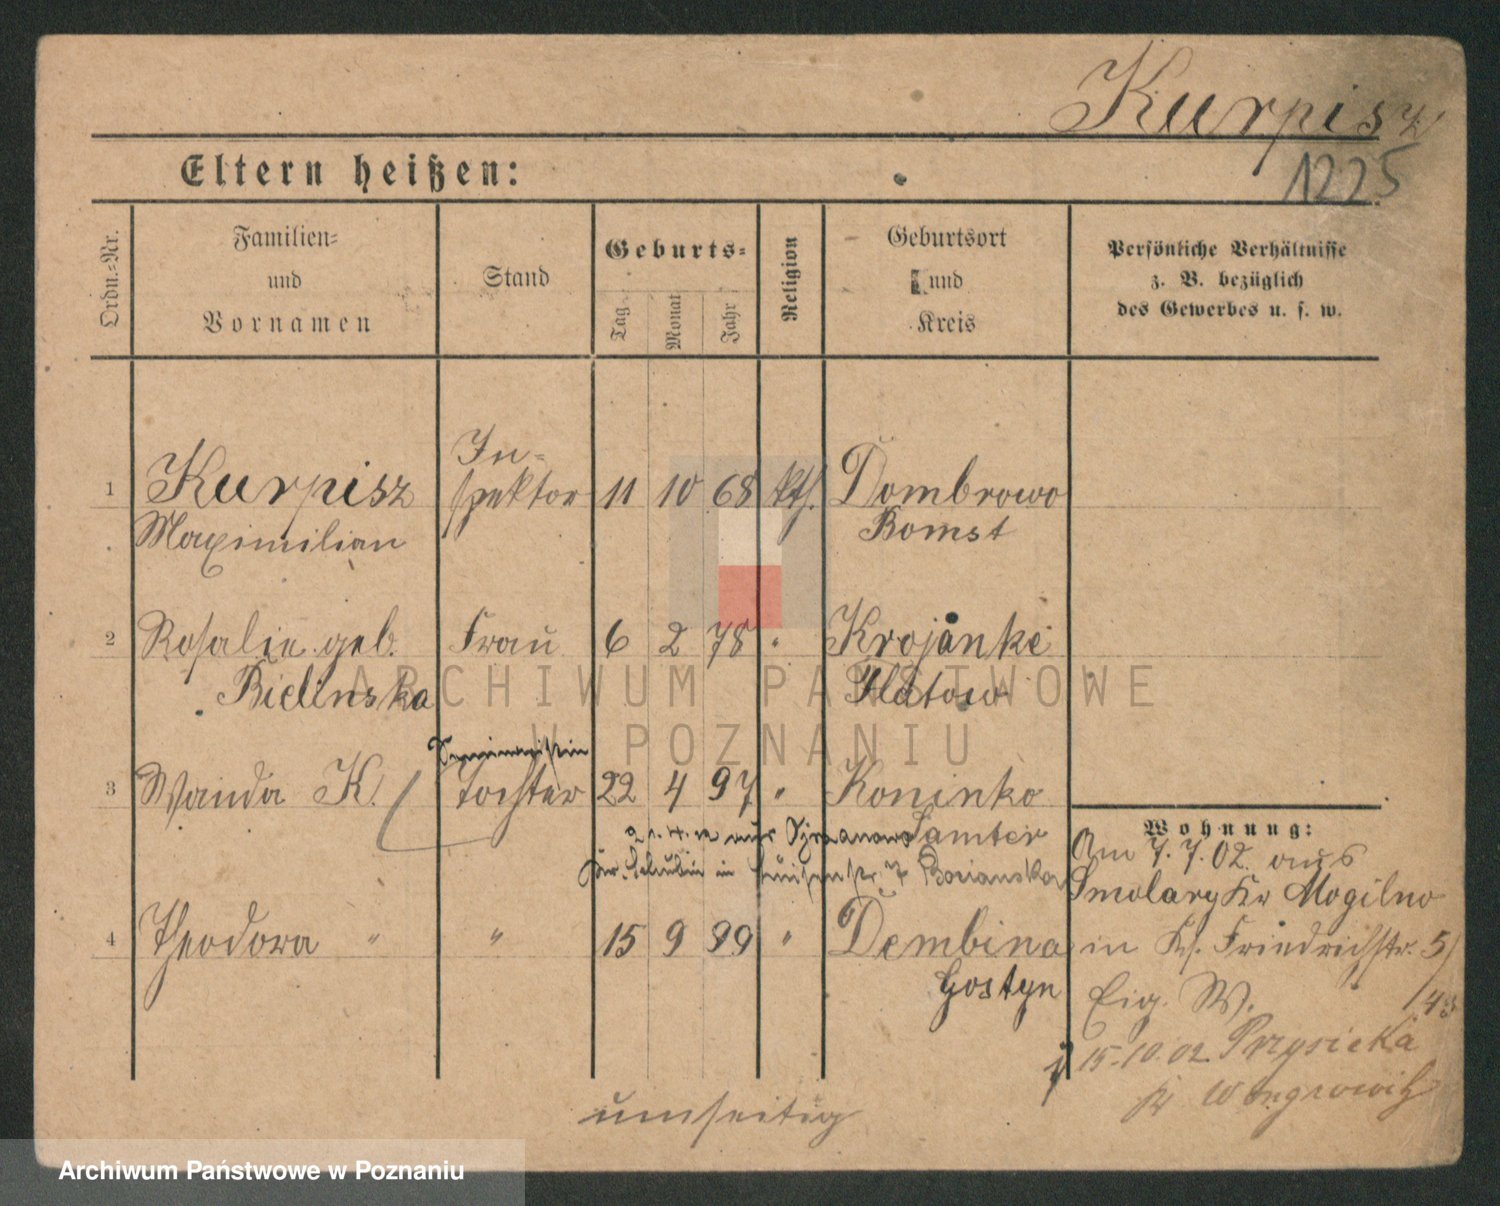 Kurpisz
1225
Eltern heißen:
Ordn.-Nr.
Familien-
und
Vornamen
Stand
Geburts-
Tag
Monat
Jahr
Religion
Geburtsort
und
Kreis
Persönliche Verhältnisse
z. B. bezüglich
des Gewerbes u. s. w.
1 Kurpisz In- spektor 11 10 68 kth. Dombrowo
Maximilian Bomst
2 Rosalie geb. Frau 6 2 78 " Krojanke
Bielinska Flatow
3 Wanda K. Tochter 22 4 97 " Koninko
Samter
in Luisenstr. 7
4 Theodora " " 15 9 99 " Dembina
Gostyn
Wohnung:
Am 7.7.02. aus
Smolary Kr Mogilno
in Friedrichstr. 5
Eig. W.
15.10.02 Przysieka
Wongrowitz
umseitig
ARCHIWUM PAŃSTWOWE
W POZNANIU
Archiwum Państwowe w Poznaniu